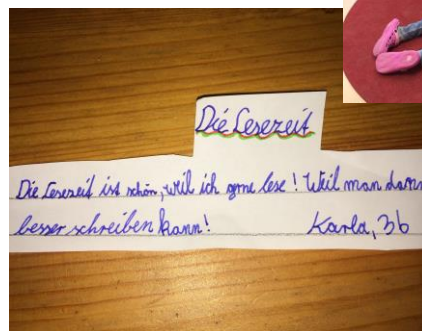 Die Lesezeit
Die Lesezeit ist schön, weil ich gerne lese! Weil man dann
besser schreiben kann!          Karla, 3b